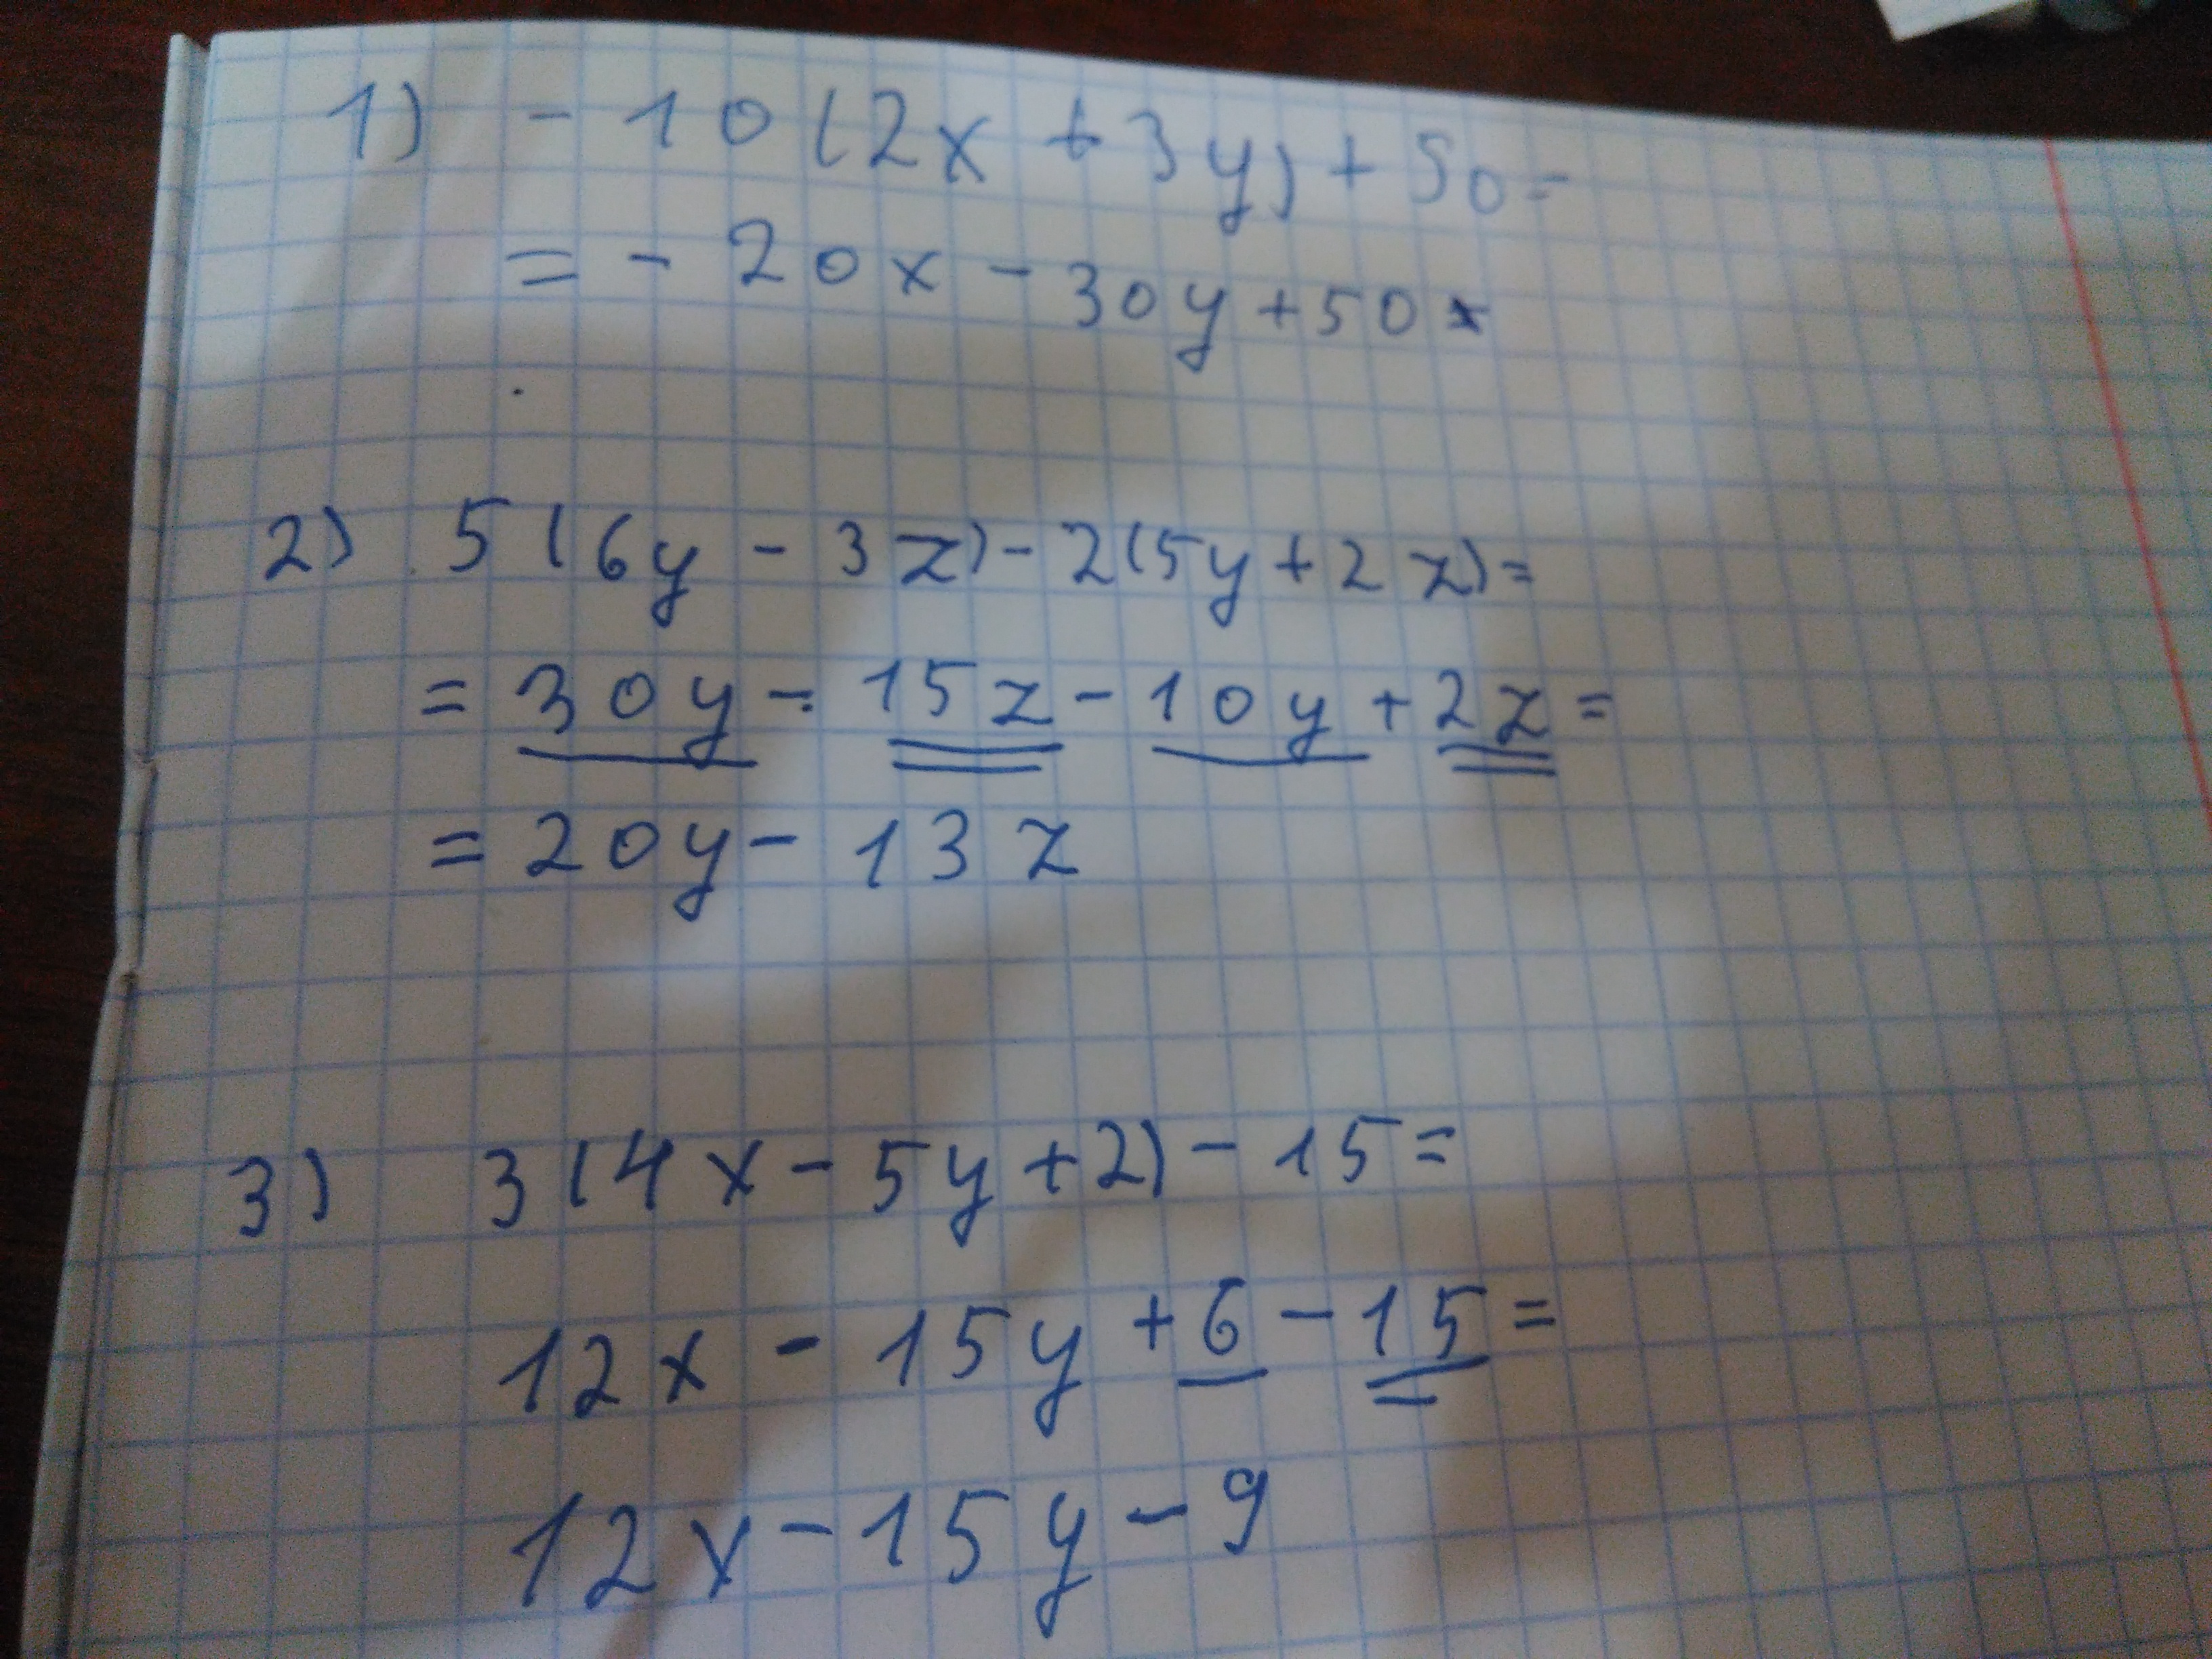 1) - 10(2x + 3y) + 50 =
= - 20x - 30y + 50
2) 5(6y - 3z) - 2(5y + 2z) =
= 30y - 15z - 10y + 2z =
= 20y - 13z
3) 3(4x - 5y + 2) - 15 =
12x - 15y + 6 - 15 =
12x - 15y - 9